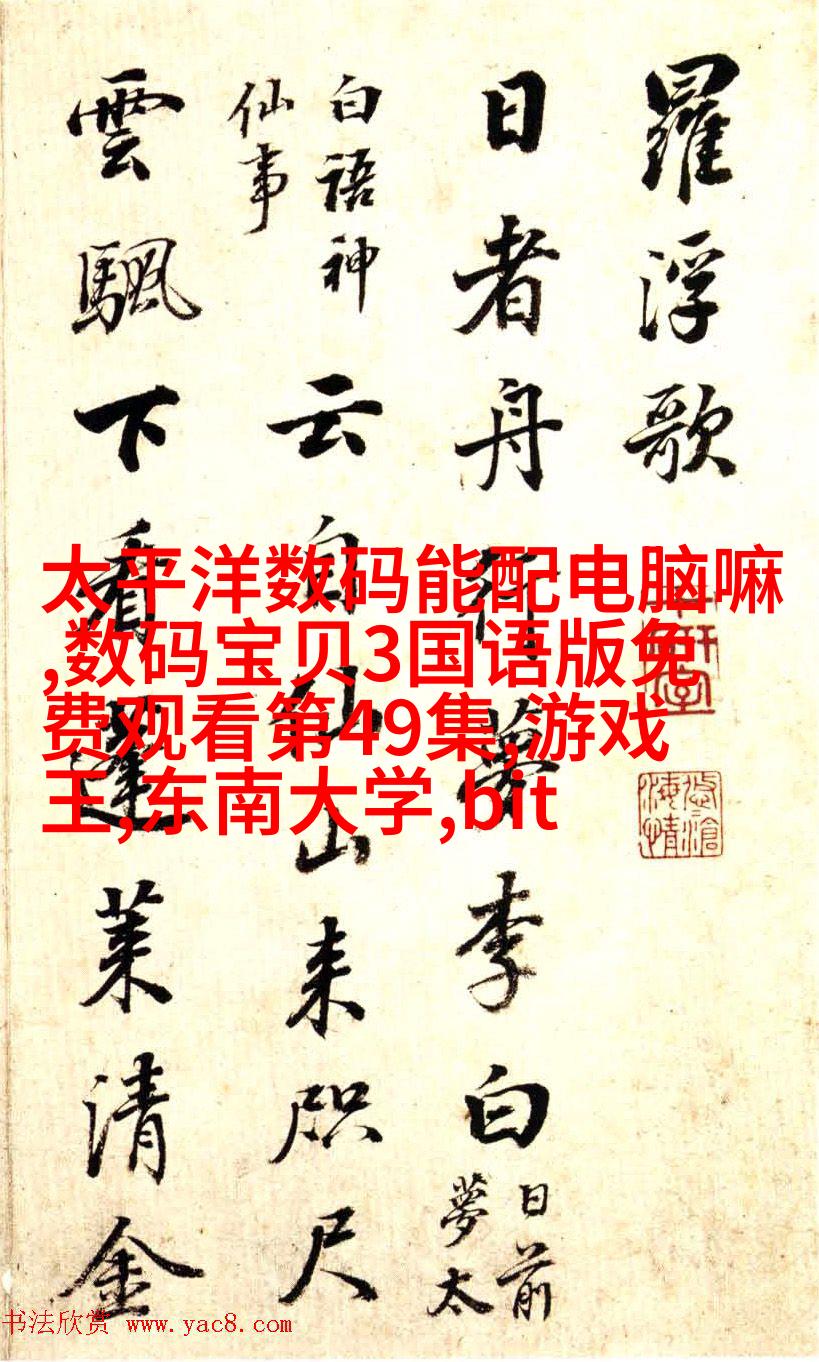 羅浮歌
日者舟行夢李白
日前
夢太
白語神
仙事
云自仙山来咫尺
雲颿下看蓬莱清金
太平洋数码能配电脑嘛
,数码宝贝3国语版免
费观看第49集,游戏
王,东南大学,bit
书法欣赏 www.yac8.com